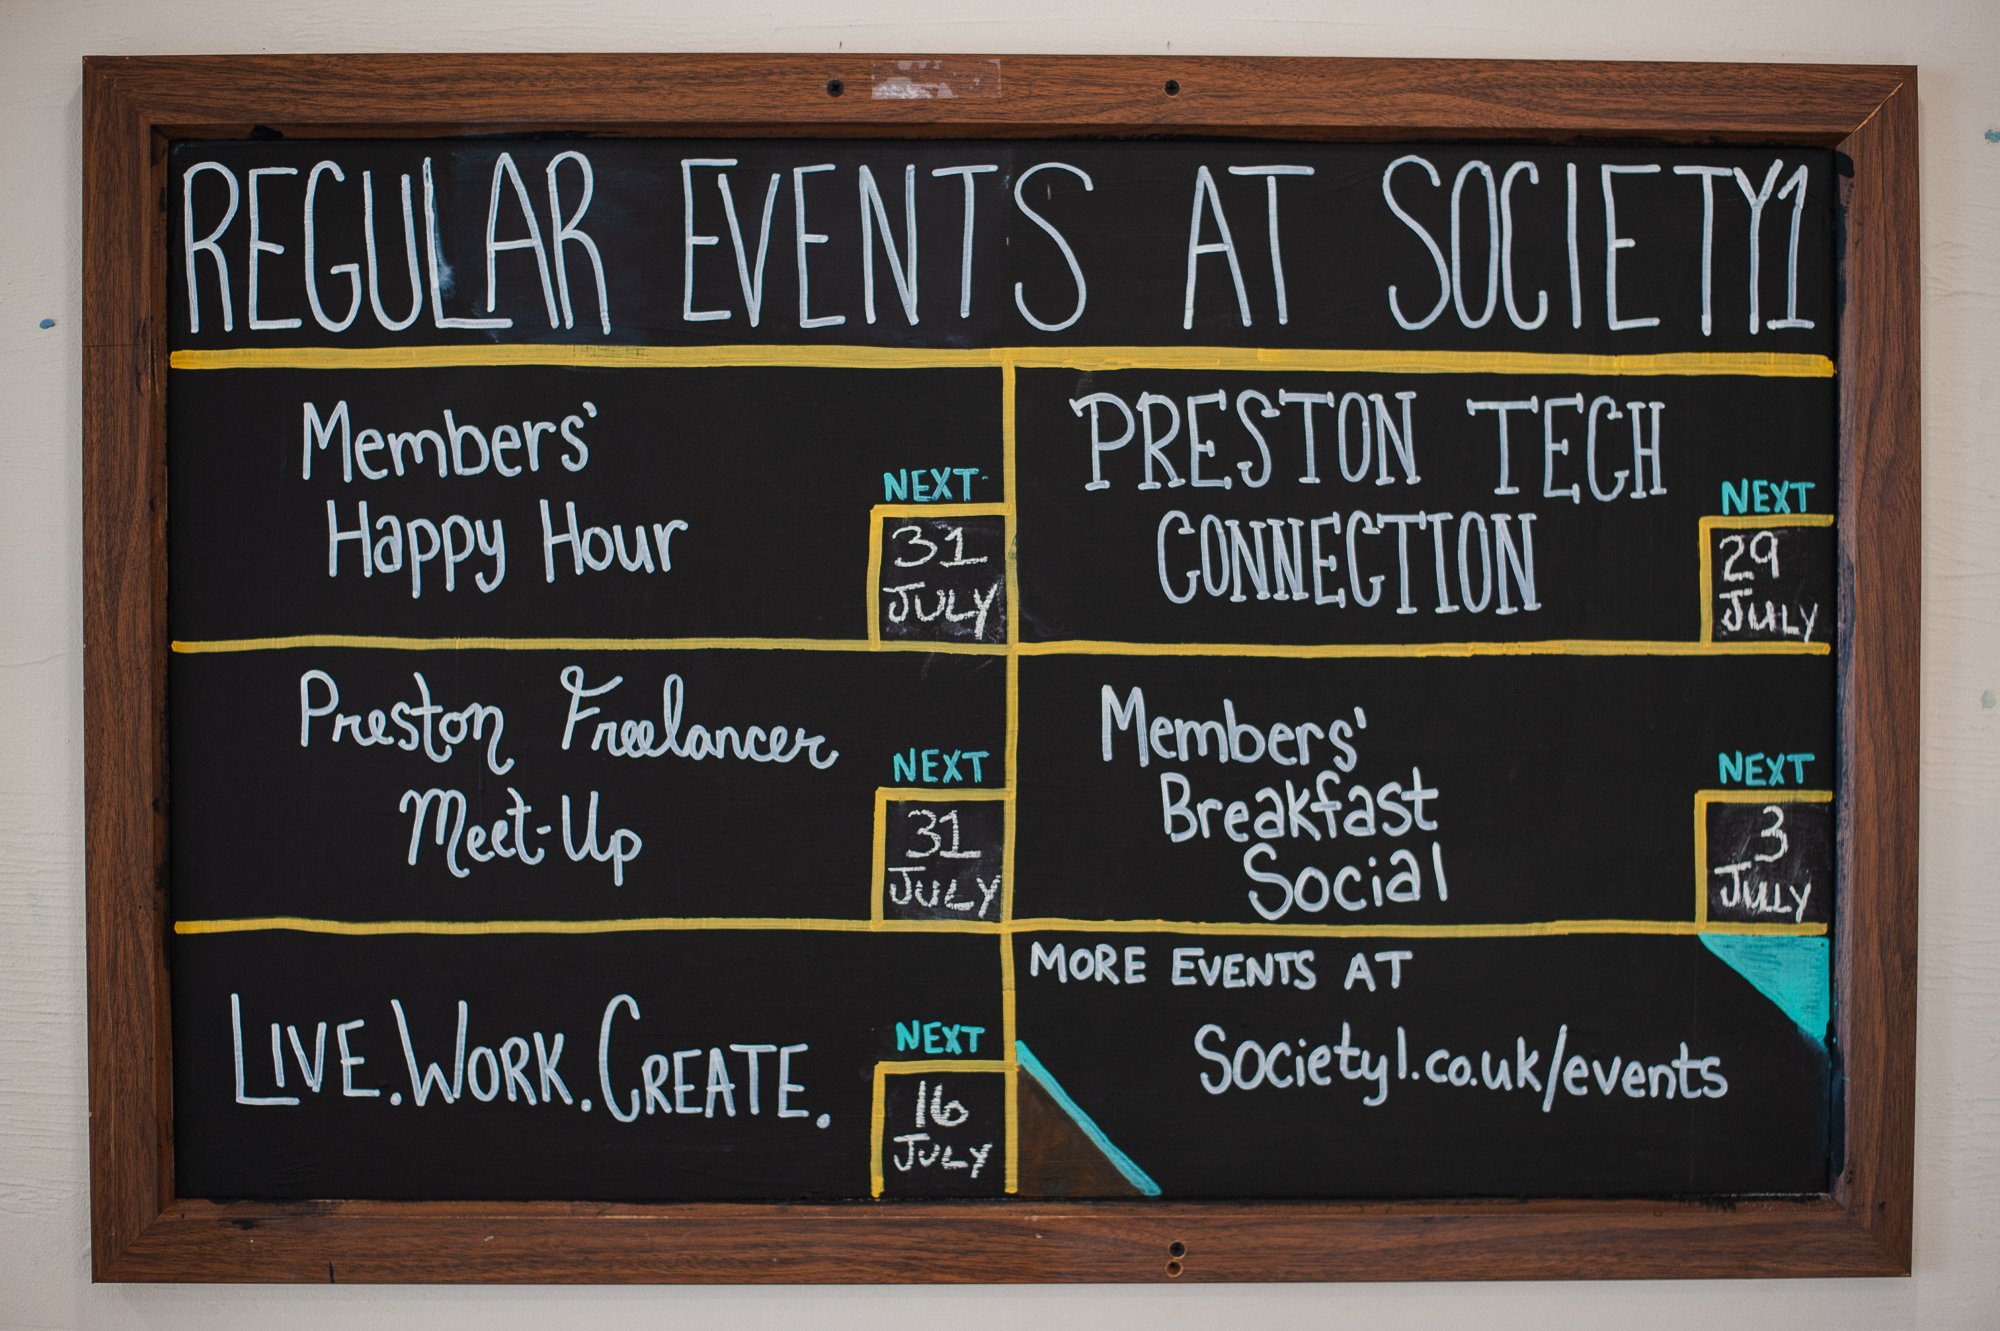 REGULAR EVENTS AT SOCIETY1
Members'
Happy Hour
NEXT
31
JULY
PRESTON TECH
CONNECTION
NEXT
29
JULY
Preston Freelancer
Meet-Up
NEXT
31
JULY
Members'
Breakfast
Social
NEXT
3
JULLY
LIVE.WORK.CREATE.
NEXT
16
JULY
MORE EVENTS AT
Society1.co.uk/events